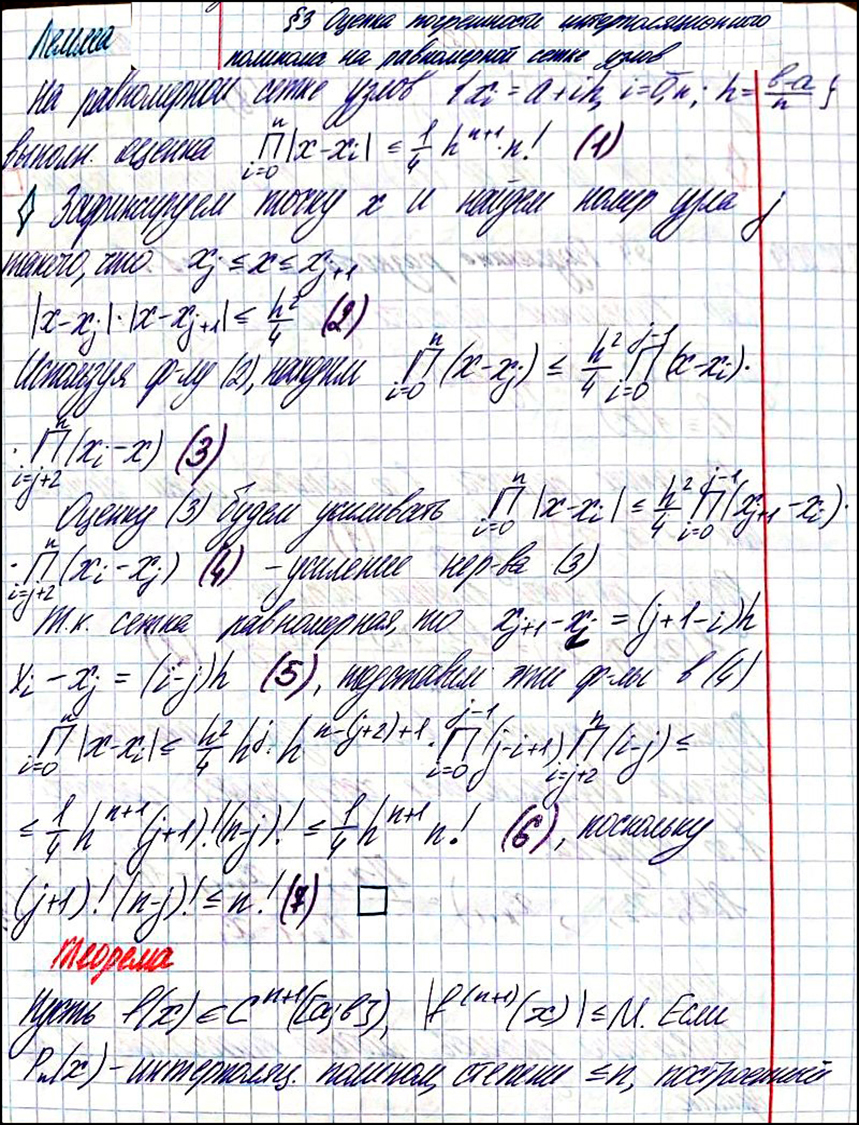 §3 Оценка погрешности интерполяционного
полинома на равномерной сетке узлов
Лемма
На равномерной сетке узлов {xᵢ = a + ih, i = 0,n; h = (b-a)/n}
выполн. оценка ∏_{i=0}^{n} |x-xᵢ| ≤ 1/4 h^{n+1}·n! (1)
◊ Зафиксируем точку x и найдем номер узла j
такого, что x_j ≤ x ≤ x_{j+1}
|x-x_j|·|x-x_{j+1}| ≤ h²/4 (2)
Используя ф-лу (2), находим ∏_{i=0}^{n} (x-x_j) ≤ h²/4 ∏_{i=0}^{j-1} (x-xᵢ)·
·∏_{i=j+2}^{n} (xᵢ-x) (3)
Оценку (3) будем усиливать ∏_{i=0}^{n} |x-xᵢ| ≤ h²/4 ∏_{i=0}^{j-1} (x_{j+1}-xᵢ)·
·∏_{i=j+2}^{n} (xᵢ-x_j) (4) – усиление нер-ва (3)
Т.к. сетка равномерная, то x_{j+1}-xᵢ = (j+1-i)h
xᵢ-x_j = (i-j)h (5), подставим эти ф-лы в (4)
∏_{i=0}^{n} |x-xᵢ| ≤ h²/4 h^{j}·h^{n-(j+2)+1}·∏_{i=0}^{j-1} (j-i+1) ∏_{i=j+2}^{n} (i-j) ≤
≤ 1/4 h^{n+1} (j+1)!(n-j)! ≤ 1/4 h^{n+1} n! (6), поскольку
(j+1)!(n-j)! ≤ n! (7) □
Теорема
Пусть f(x) ∈ C^{n+1}([a;b]), |f^{(n+1)}(x)| ≤ M. Если
Pₙ(x) – интерполяц. полином, степени ≤n, построенный